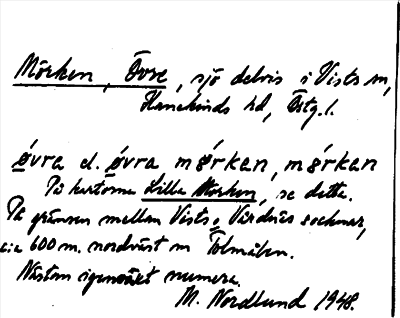 Mörken, Övre, sjö delvis i Vists sn,
Hanekinds hd, Östg. l.
øvra el. øvra mørkan, mørkan
På kartorna Lilla Mörken, se detta.
På gränsen mellan Vists o. Vårdnäs socknar,
c:a 600 m. nordväst om Tolmålen.
Nästan igenväxt numera.
M. Nordlund 1948.